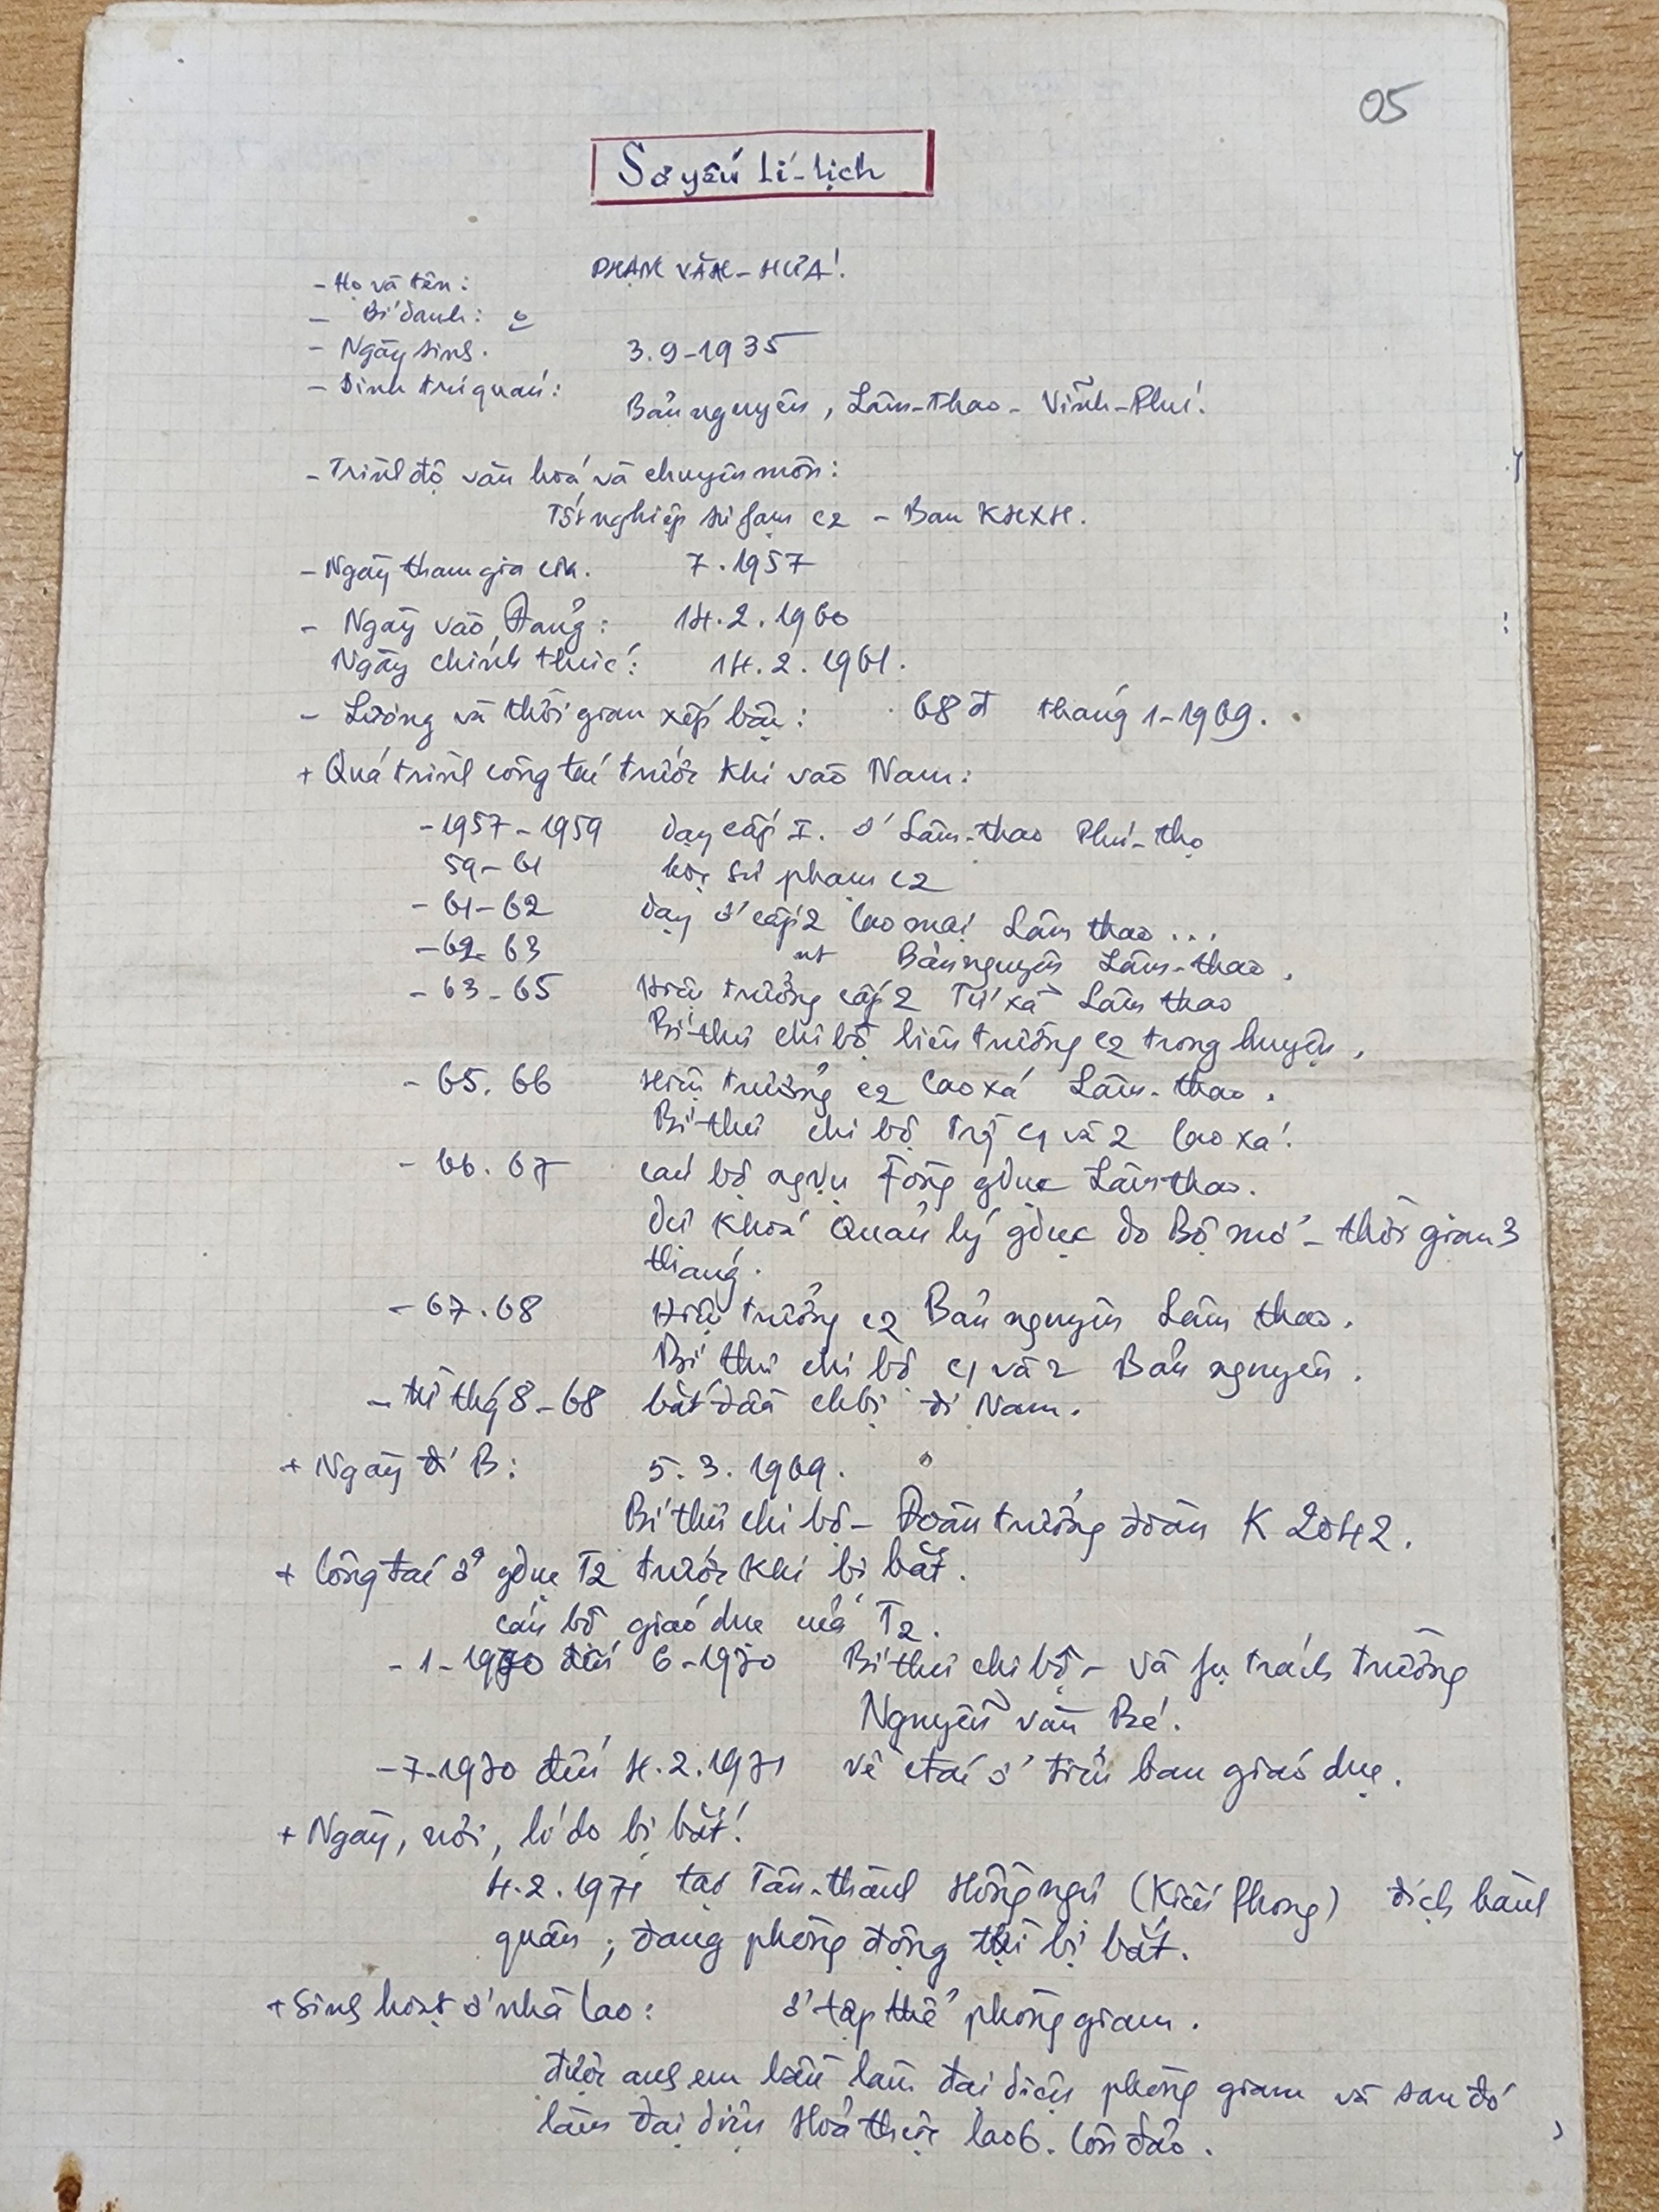 05
Sơ yếu lí-lịch
- Họ và tên: PHẠM VĂN-HỨA!
- Bí danh: o
- Ngày sinh. 3.9-1935
- Sinh trú quán: Bản nguyên, Lâm-thao - Vĩnh-Phú.
- Trình độ văn hoá và chuyên môn:
Tốt nghiệp sư fạm c2 - Ban KHXH.
- Ngày tham gia CM. 7.1957
- Ngày vào Đảng: 14.2.1960
Ngày chính thức: 14.2.1961.
- Lương và thời gian xếp bậc: 68đ tháng 1-1969.
+ Quá trình công tác trước khi vào Nam:
- 1957-1959 dạy cấp I. ở Lâm-thao Phú-thọ
59-61 học sư phạm c2
- 61-62 dạy ở cấp 2 Cao mại Lâm thao...
- 62-63 nt Bản nguyên Lâm-thao.
- 63-65 Hiệu trưởng cấp 2 Tứ xã Lâm thao
Bí thư chi bộ liên trường c2 trong huyện.
- 65.66 Hiệu trưởng c2 Cao xá Lâm-thao.
Bí thư chi bộ Trg c1 và 2 Cao xá.
- 66.67 cán bộ ngvụ Fòng gdục Lâm thao.
Dự khoá Quản lý gdục do Bộ mở - thời gian 3
tháng.
- 67.68 Hiệu trưởng c2 Bản nguyên Lâm thao.
Bí thư chi bộ c1 và 2 Bản nguyên.
- từ thg 8-68 bắt đầu chbị đi Nam.
+ Ngày đi B: 5.3.1969.
Bí thư chi bộ - Đoàn trưởng đoàn K 2042.
+ Công tác ở gdục T2 trước khi bị bắt.
cán bộ giáo dục của T2.
- 1-1970 đến 6-1970 Bí thư chi bộ - và fụ trách trường
Nguyễn văn Bé.
- 7-1970 đến 4.2.1971 về ctác ở tiểu ban giáo dục.
+ Ngày, nơi, lí do bị bắt!
4.2.1971 tại Tân-thành Hồng ngự (Kiến Phong) địch hành
quân, đang phòng động thì bị bắt.
+ Sinh hoạt ở nhà lao: ở tập thể phòng giam.
được anh em bầu làm đại diện phòng giam và sau đó
làm đại diện Hoả thực lao 6. Côn đảo.